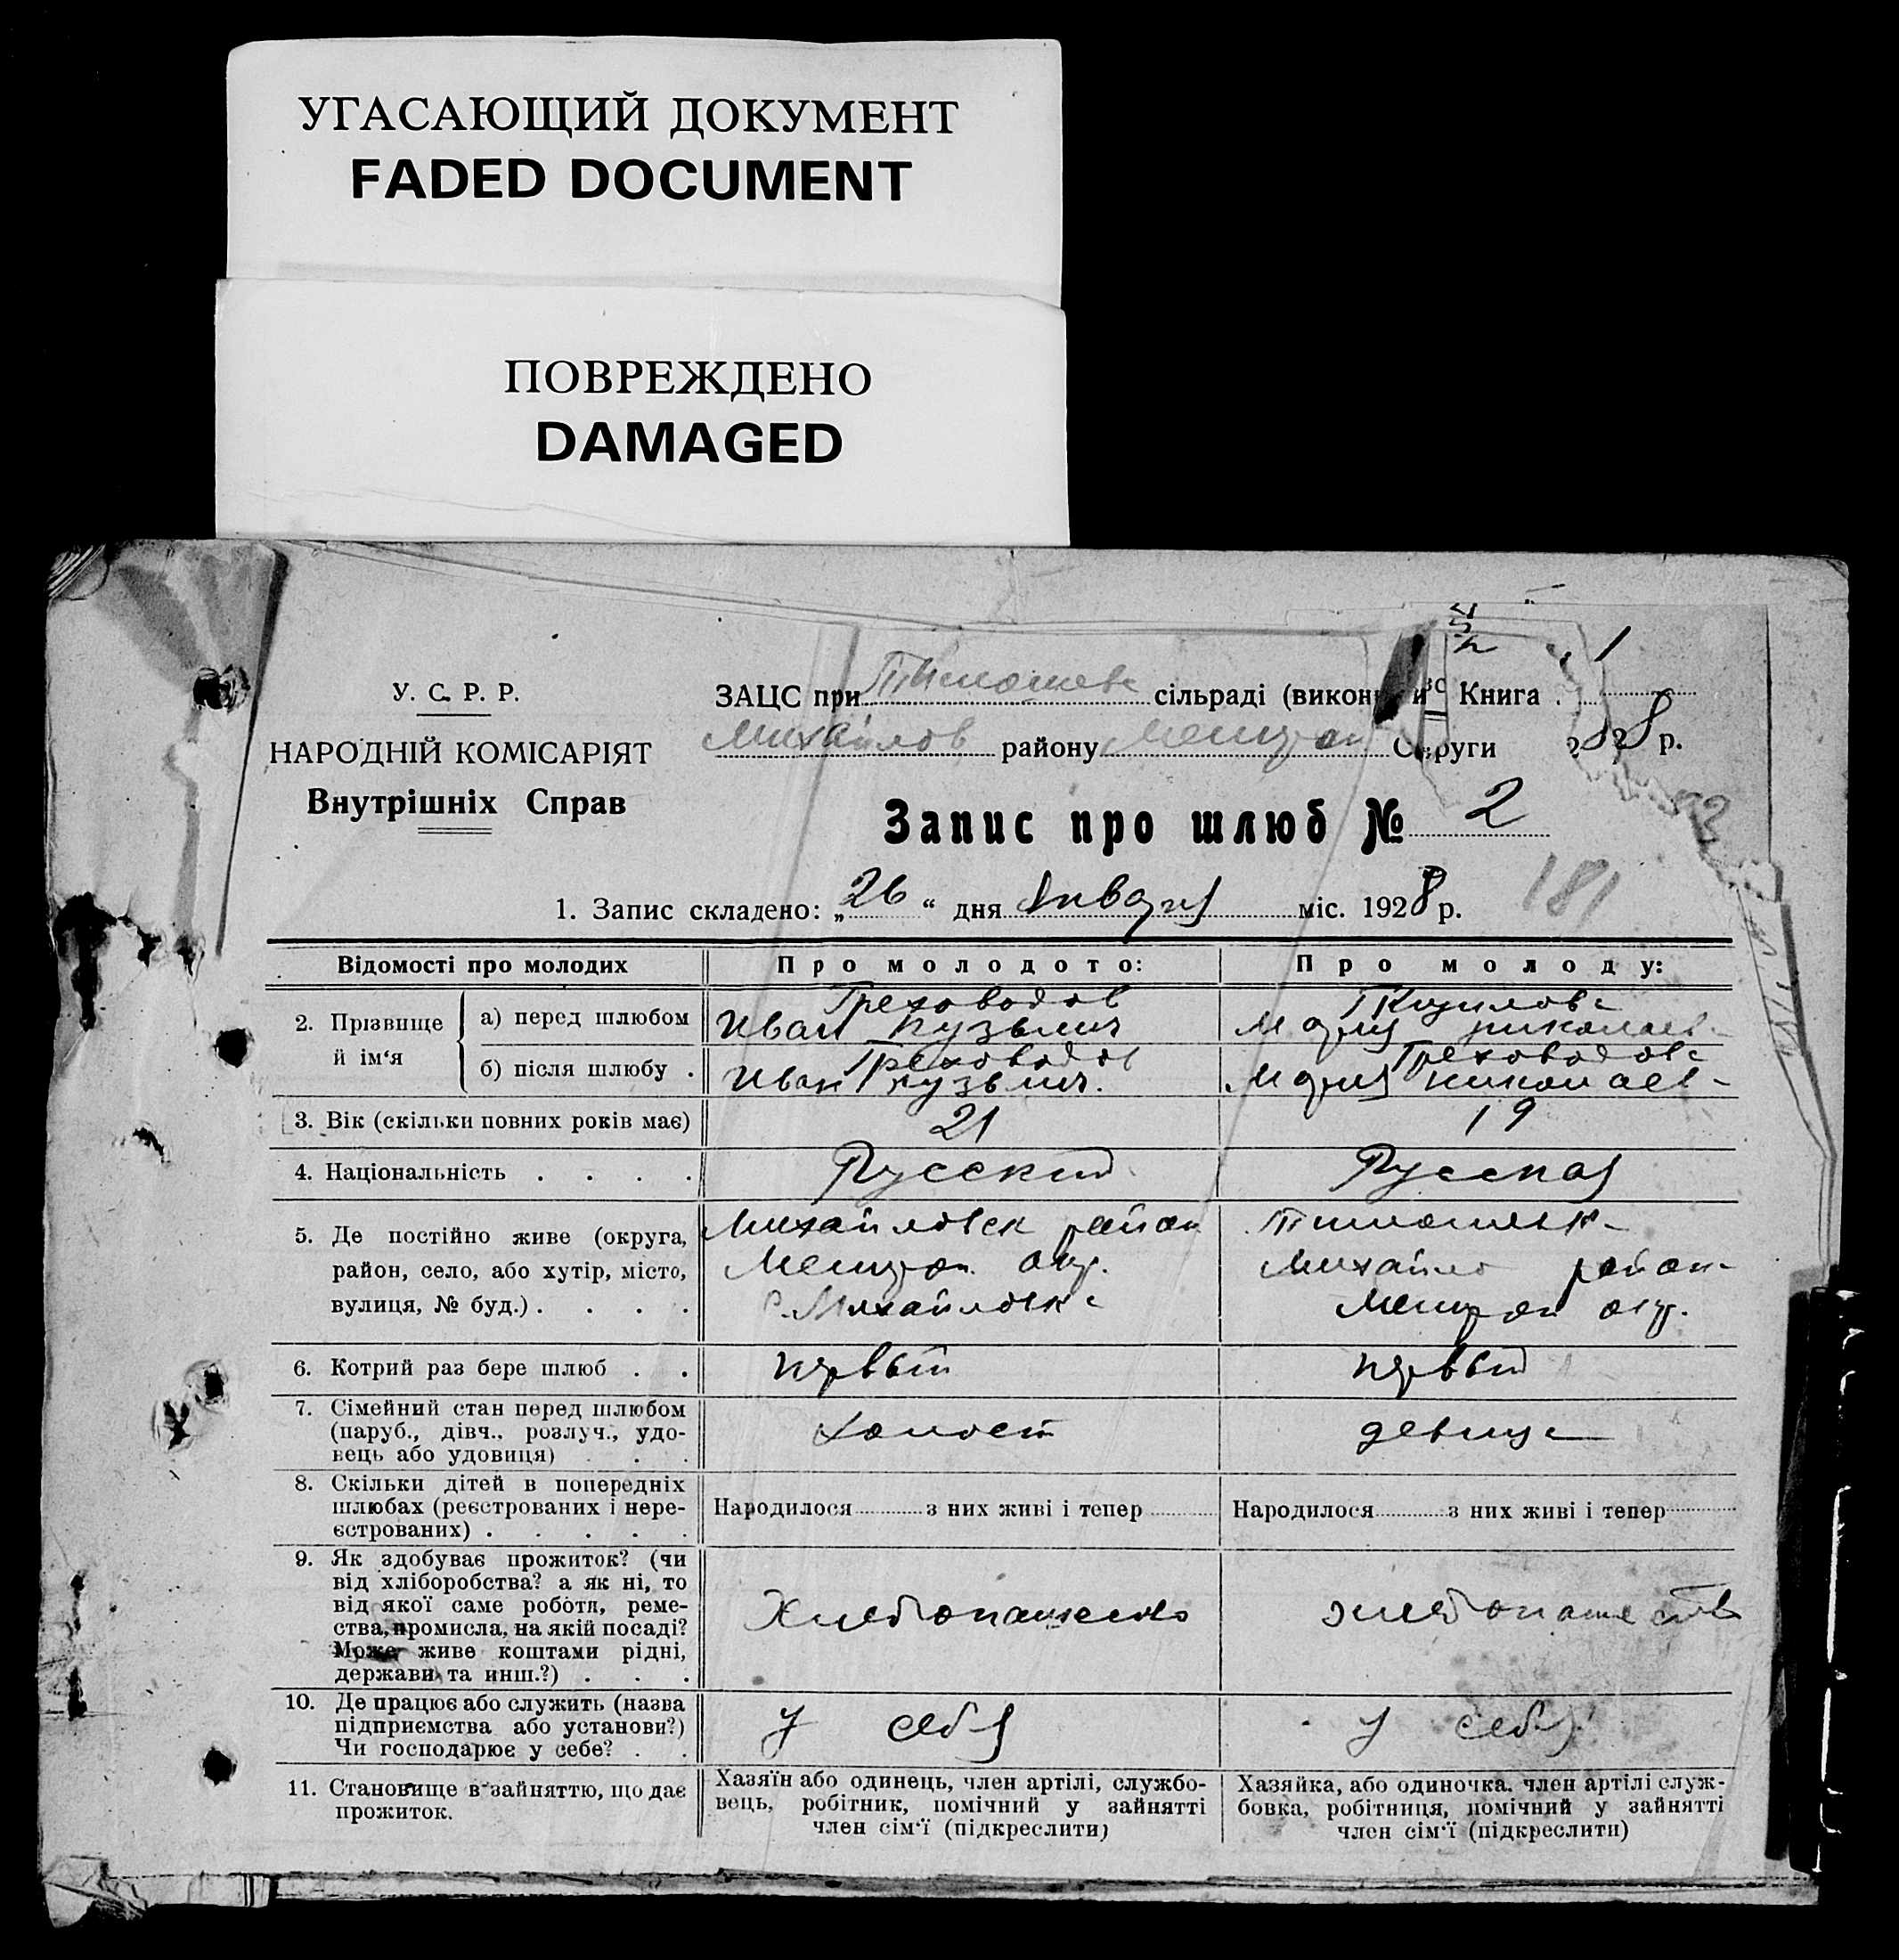 УГАСАЮЩИЙ ДОКУМЕНТ
FADED DOCUMENT
ПОВРЕЖДЕНО
DAMAGED
У. С. Р. Р.
НАРОДНІЙ КОМІСАРІЯТ
Внутрішніх Справ
ЗАЦС при Тимошевс сільраді (викон Книга 1
Михайлов району Округи 8 р.
Запис про шлюб № 2
181
1. Запис складено: „26“ дня Января міс. 1928 р.
Відомості про молодих
Про молодого:
Про молоду:
2. Прізвище й ім'я
а) перед шлюбом
Греховодов
Иван Кузьмич
Мария Николаев
б) після шлюбу .
Греховодов
Иван Кузьмич.
Греховодова
Мария Николаев-
3. Вік (скільки повних років має)
21
19
4. Національність . . . .
Русский
Русская
5. Де постійно живе (округа,
район, село, або хутір, місто,
вулиця, № буд.) . . . .
Михайловск район
Мелитоп. окр.
с. Михайловка
Тимошевк-
Михайло район-
Мелитоп окр.
6. Котрий раз бере шлюб . .
первый
первый
7. Сімейний стан перед шлюбом
(паруб., дівч., розлуч., удо-
вець або удовиця) . . .
холост
девица
8. Скільки дітей в попередніх
шлюбах (реєстрованих і нере-
єстрованих) . . . . .
Народилося з них живі і тепер
Народилося з них живі і тепер
9. Як здобуває прожиток? (чи
від хліборобства? а як ні, то
від якої саме роботи, реме-
ства, промисла, на якій посаді?
Може живе коштами рідні,
держави та инш.?) . . .
Хлебопашество
хлебопашеств
10. Де працює або служить (назва
підприємства або установи?)
Чи господарює у себе? . .
У себя
У себя
11. Становище в зайняттю, що дає
прожиток.
Хазяїн або одинець, член артілі, службо-
вець, робітник, помічний у зайнятті
член сім'ї (підкреслити)
Хазяйка, або одиночка, член артілі служ-
бовка, робітниця, помічний у зайнятті
член сім'ї (підкреслити)